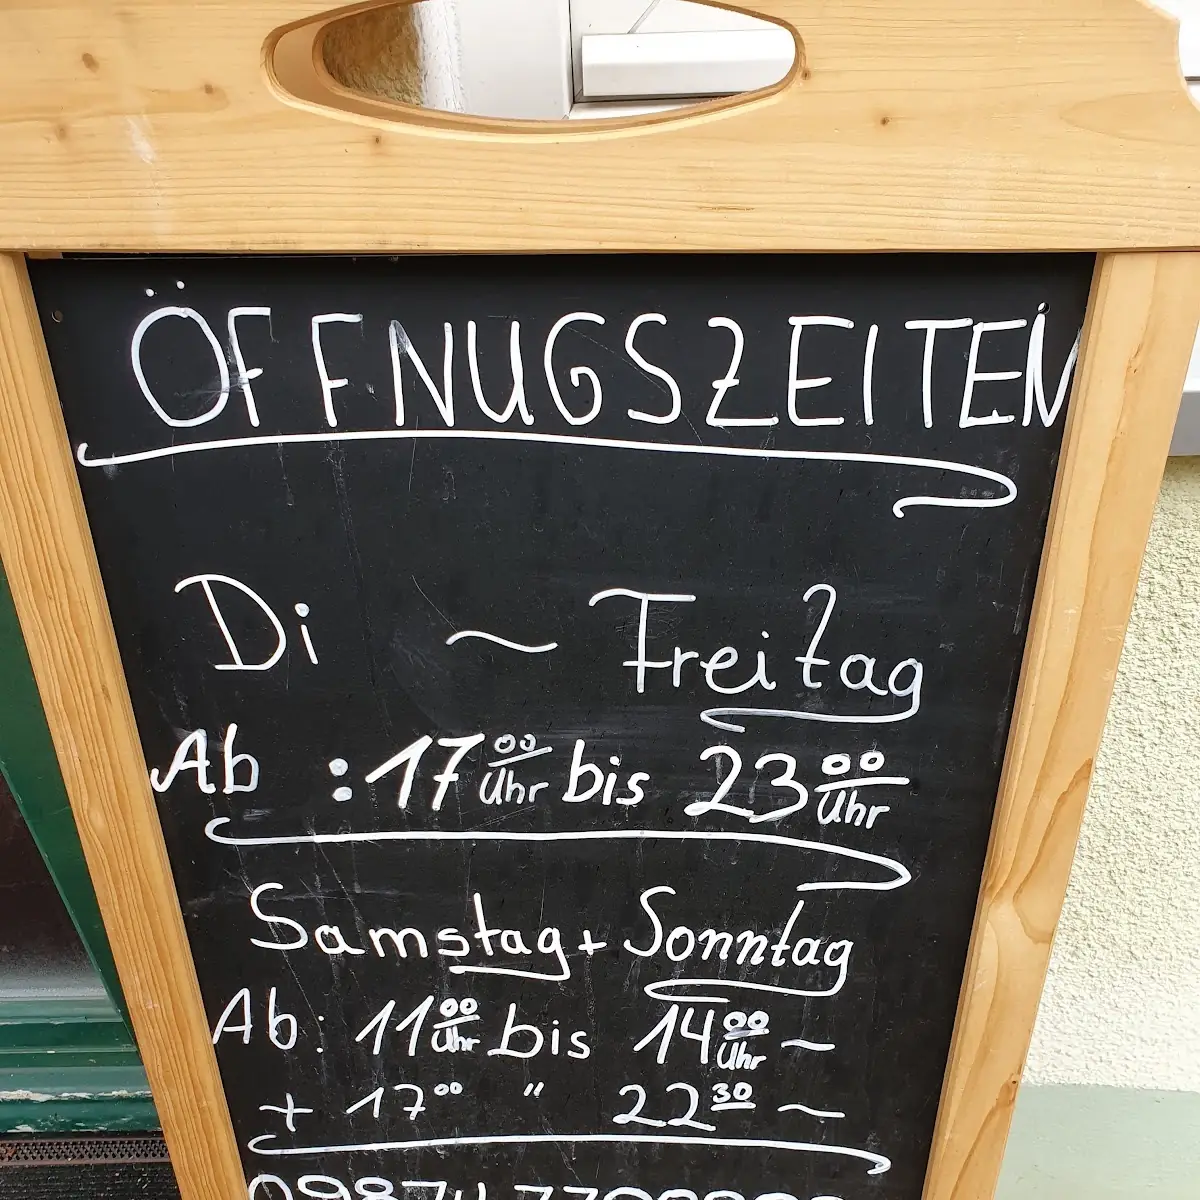 ÖFFNUGSZEITEN
Di ~ Freitag
Ab : 17⁰⁰ Uhr bis 23⁰⁰ Uhr
Samstag + Sonntag
Ab: 11⁰⁰ Uhr bis 14⁰⁰ Uhr ~
+ 17⁰⁰ " 22³⁰ ~